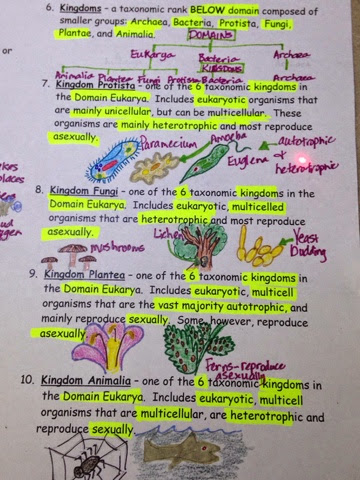 6. Kingdoms - a taxonomic rank BELOW domain composed of
smaller groups: Archaea, Bacteria, Protista, Fungi,
Plantae, and Animalia.
DOMAINS
or
Eukarya Bacteria Archaea
KINGDOMS
Animalia Plantea Fungi Protista Bacteria Archaea
7. Kingdom Protista - one of the 6 taxonomic kingdoms in
the Domain Eukarya. Includes eukaryotic organisms that
are mainly unicellular, but can be multicellular. These
organisms are mainly heterotrophic and most reproduce
asexually.
Paramecium Amoeba Euglena autotrophic
&
heterotrophic
8. Kingdom Fungi - one of the 6 taxonomic kingdoms in the
Domain Eukarya. Includes eukaryotic, multicelled
organisms that are heterotrophic and most reproduce
asexually.
mushrooms Lichen Yeast
Budding
9. Kingdom Plantea - one of the 6 taxonomic kingdoms in
the Domain Eukarya. Includes eukaryotic, multicell
organisms that are the vast majority autotrophic, and
mainly reproduce sexually. Some, however, reproduce
asexually.
Ferns-reproduce
asexually
10. Kingdom Animalia - one of the 6 taxonomic kingdoms in
the Domain Eukarya. Includes eukaryotic, multicell
organisms that are multicellular, are heterotrophic and
reproduce sexually.